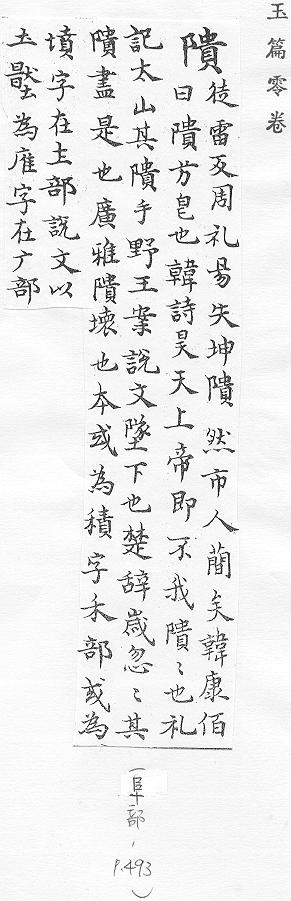 玉篇零卷
隤 徒雷反周礼易失坤隤然市人蕳矣韓康佰
曰隤芳皃也韓詩昊天上帝即不我隤〻也礼
記太山其隤乎野王案說文墜下也楚辞嵗忽〻其
隤盡是也廣雅隤壊也夲或為穨字禾部或為
墳字在土部說文以
為㢈字在广部
（阜部，
P.493）